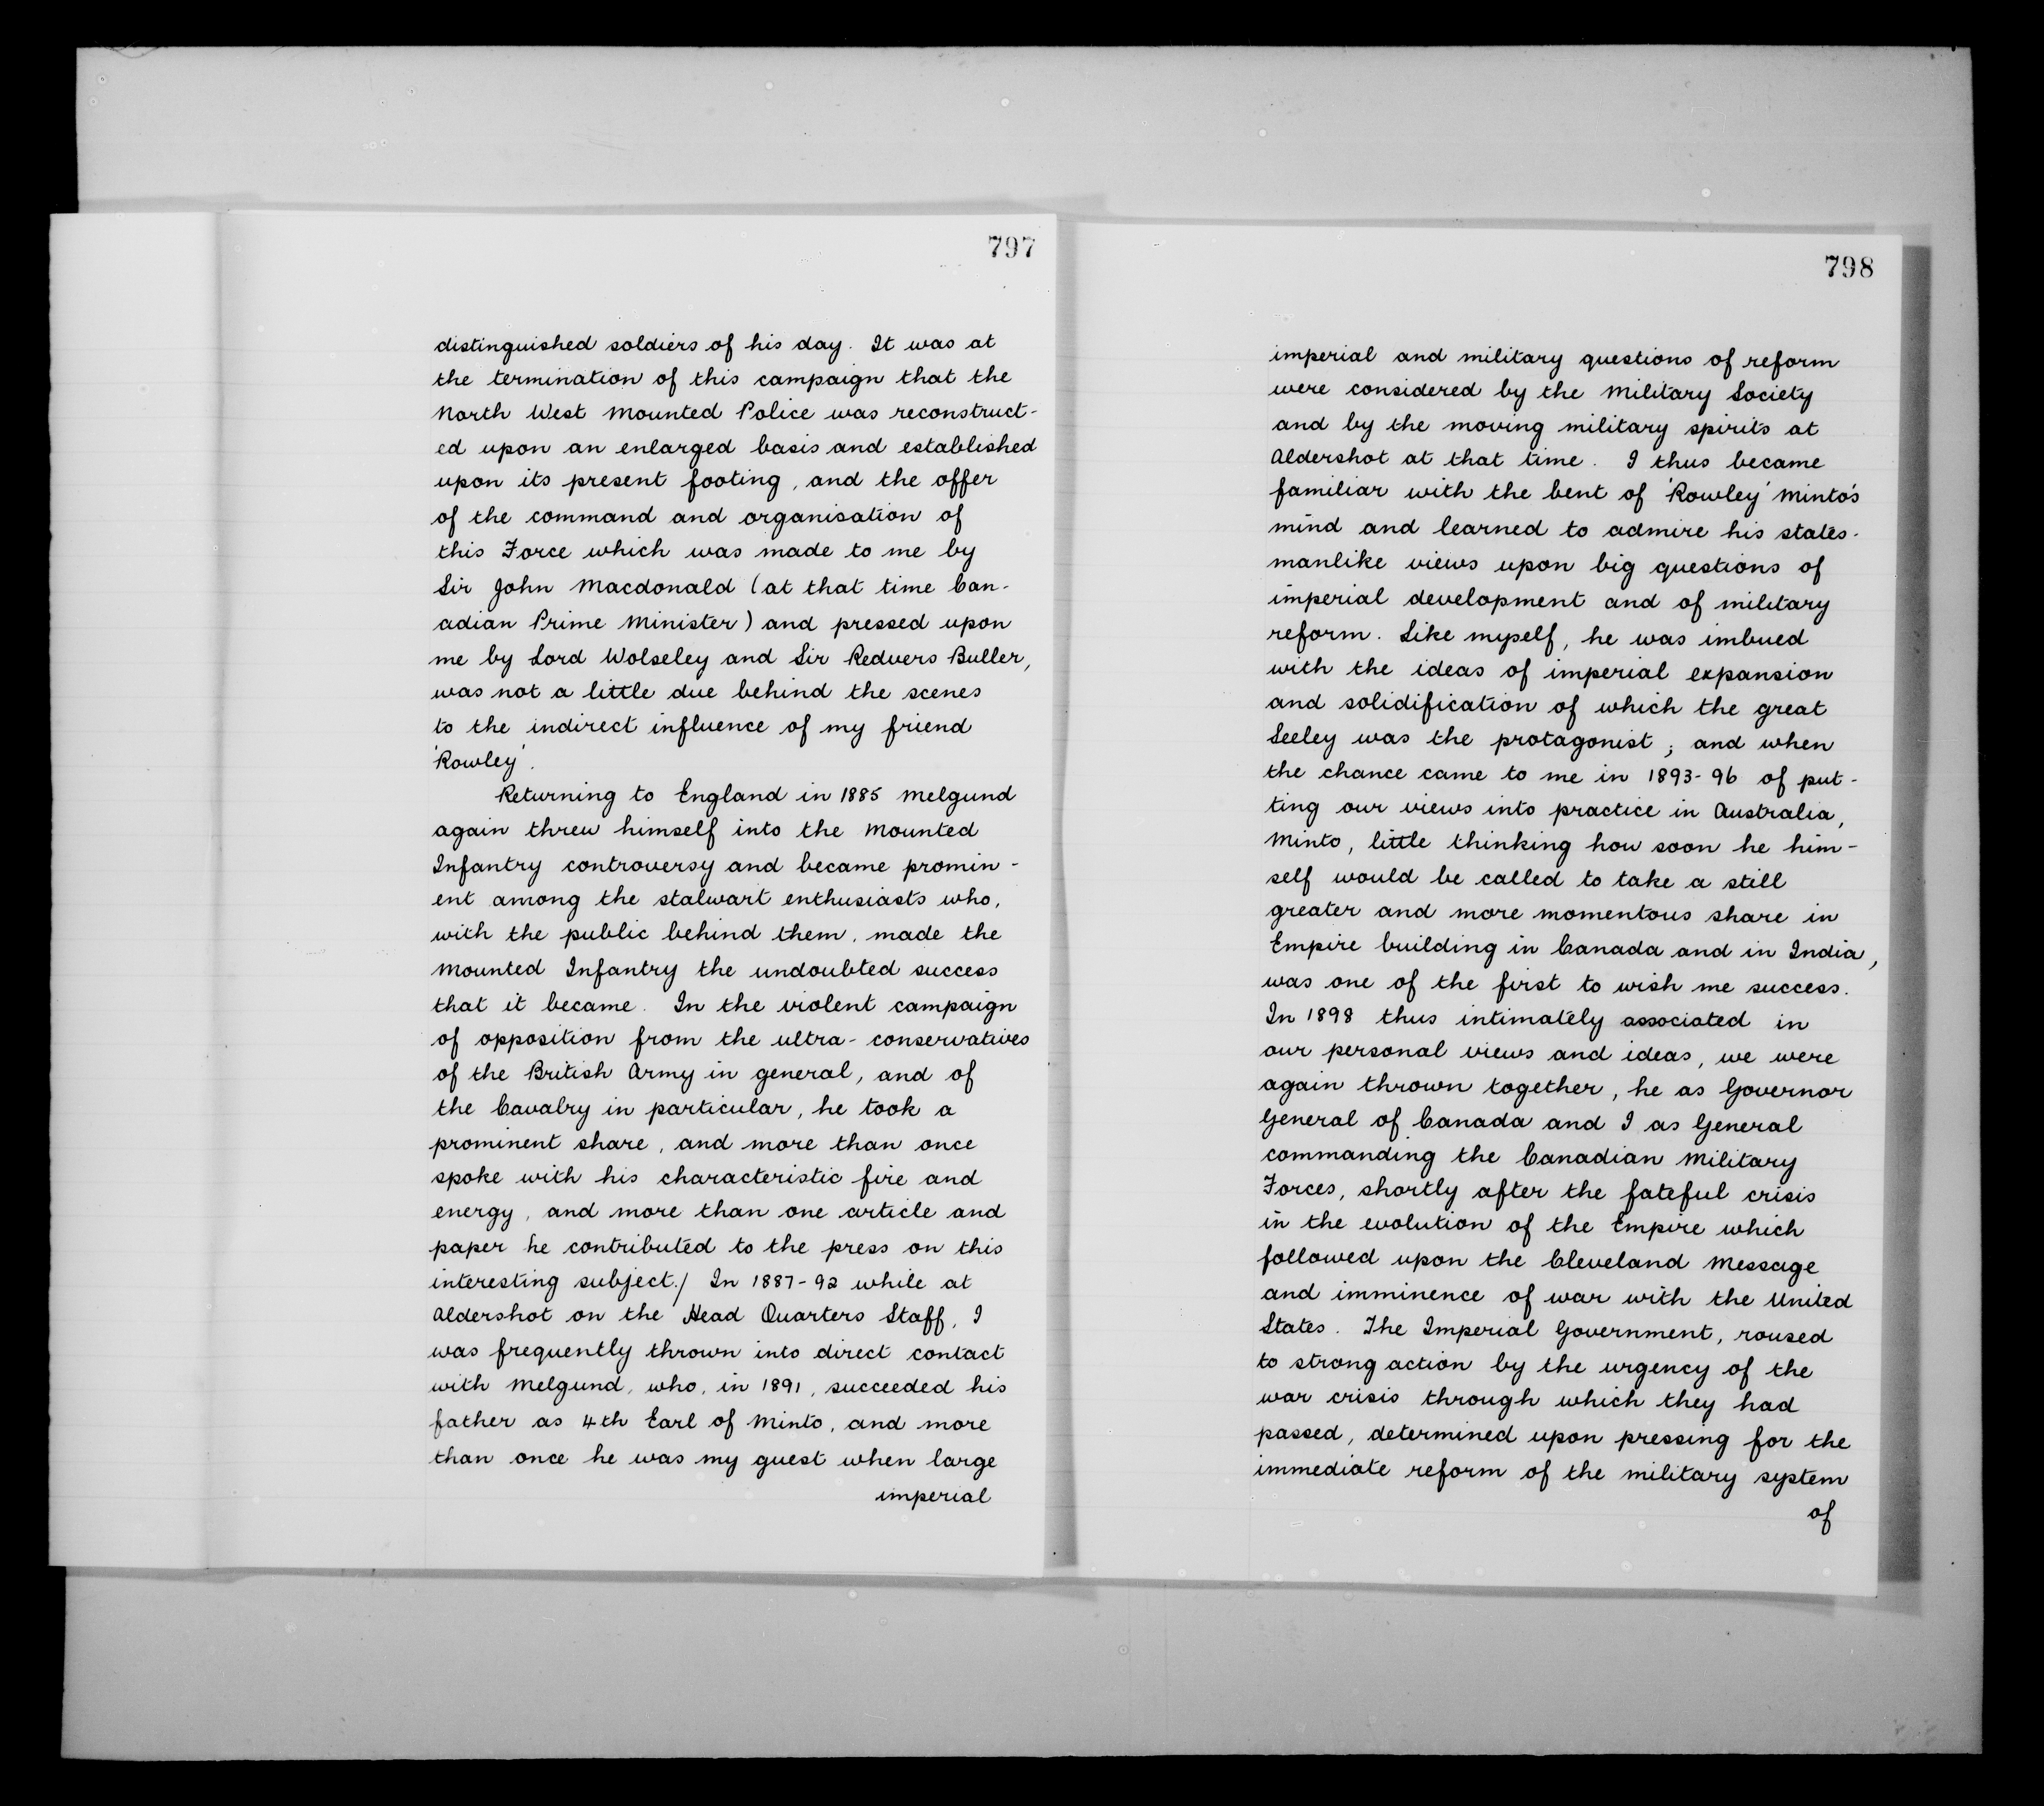 797
distinguished soldiers of his day. It was at
the termination of this campaign that the
North West Mounted Police was reconstruct-
ed upon an enlarged basis and established
upon its present footing, and the offer
of the command and organisation of
this Force which was made to me by
Sir John Macdonald (at that time Can-
adian Prime Minister) and pressed upon
me by Lord Wolseley and Sir Redvers Buller,
was not a little due behind the scenes
to the indirect influence of my friend
'Rowley'.
Returning to England in 1885 Melgund
again threw himself into the Mounted
Infantry controversy and became promin-
ent among the stalwart enthusiasts who,
with the public behind them, made the
Mounted Infantry the undoubted success
that it became. In the violent campaign
of opposition from the ultra-conservatives
of the British Army in general, and of
the Cavalry in particular, he took a
prominent share, and more than once
spoke with his characteristic fire and
energy, and more than one article and
paper he contributed to the press on this
interesting subject./ In 1887-92 while at
Aldershot on the Head Quarters Staff, I
was frequently thrown into direct contact
with Melgund, who, in 1891, succeeded his
father as 4th Earl of Minto, and more
than once he was my guest when large
imperial
798
imperial and military questions of reform
were considered by the Military Society
and by the moving military spirits at
Aldershot at that time. I thus became
familiar with the bent of 'Rowley' Minto's
mind and learned to admire his states-
manlike views upon big questions of
imperial development and of military
reform. Like myself, he was imbued
with the ideas of imperial expansion
and solidification of which the great
Seeley was the protagonist; and when
the chance came to me in 1893-96 of put-
ting our views into practice in Australia,
Minto, little thinking how soon he him-
self would be called to take a still
greater and more momentous share in
Empire building in Canada and in India,
was one of the first to wish me success.
In 1898 thus intimately associated in
our personal views and ideas, we were
again thrown together, he as Governor
General of Canada and I as General
commanding the Canadian Military
Forces, shortly after the fateful crisis
in the evolution of the Empire which
followed upon the Cleveland Message
and imminence of war with the United
States. The Imperial Government, roused
to strong action by the urgency of the
war crisis through which they had
passed, determined upon pressing for the
immediate reform of the military system
of